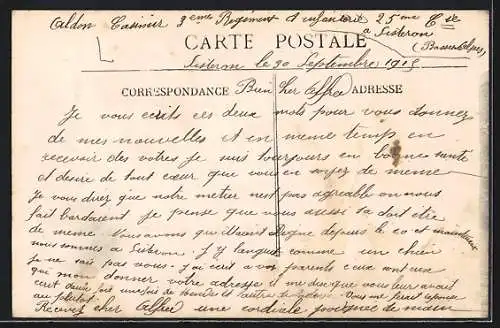 Caldon Casimir 3eme Regiment d'infanterie 25me Cie
à Sisteron
(Basses Alpes)
CARTE POSTALE
Sisteron le 30 Septembre 1915
CORRESPONDANCE Bien cher Alfred ADRESSE
Je vous ecrits ces deux mots pour vous donnez
de mes nouvelles et en meme temps en
recevoir des votres je suis toujours en bonne santé
et desire de tout cœur que vous en soyez de meme
Je vous direz que notre metier n'est pas agreable on nous
fait bardacent je pense que vous aussi sa doit être
de meme nous avons quittait Digne depuis le 10 et maintenant
nous sommes a Sisteron. J'y langui comme un chien
je ne sais pas vous. J'ai ecrit a vos parents ceux ont
qui mon donner votre adresse il me dise que vous leur avait
ecrit deux fois une fois de et l'autre
au Recevez cher Alfred une cordiale poignée de main
Vous me ferait reponse